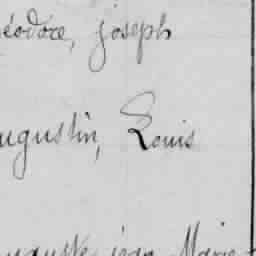 éodore, joseph
ugustin, Louis
uguste jean Marie